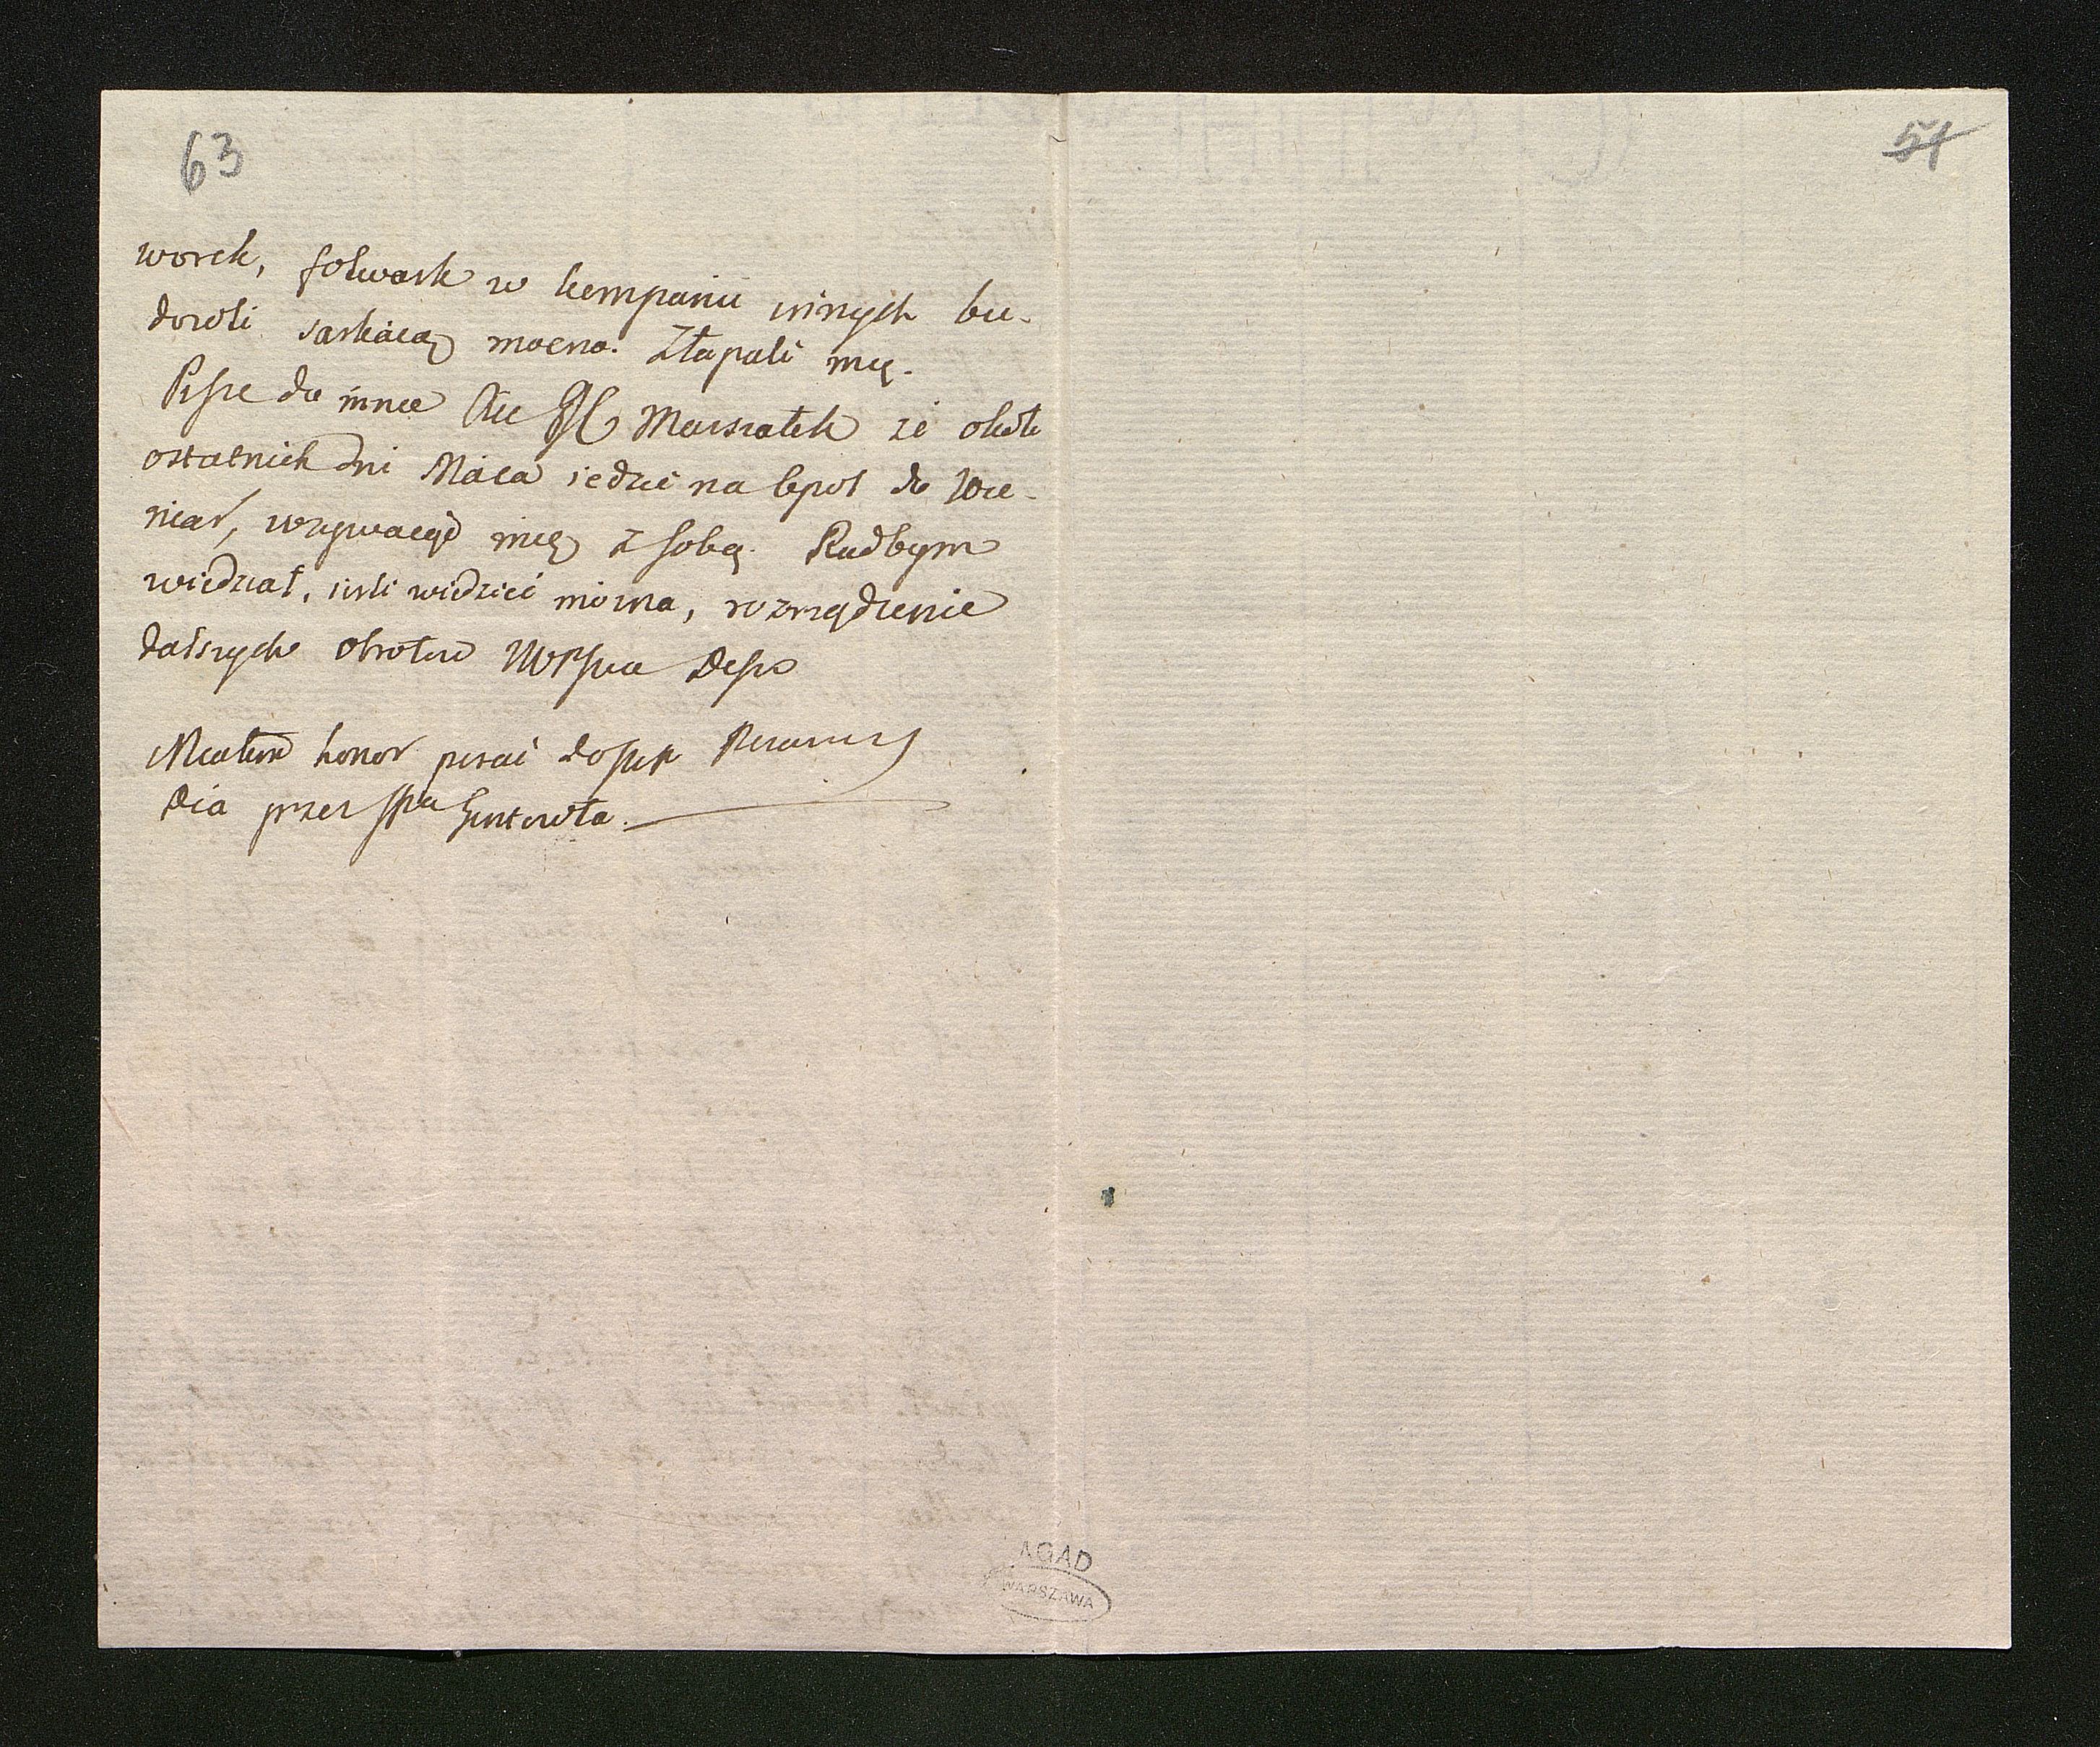 63
51
worek, folwark w kompanii innych bu-
dowli sarkaią mocno. Złapali mię.
Pisze do mnie Xże JM Marszałek że około
ostatnich dni Maia iedzie na lepos do Wie-
niar, wzywaiąc mię z sobą. Radbym
wiedział, iesli wiedzieć można, rozrządzenie
dalszych obrotow WPSwa Dego
Miałem honor pisać do
dia przez JPa Gintowta.
AGAD
WARSZAWA